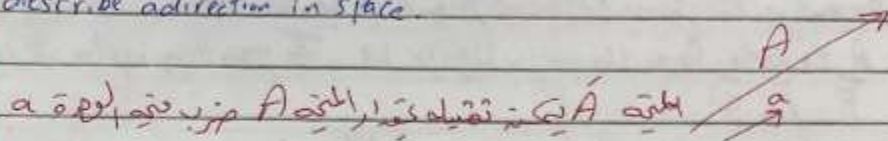 describe a direction in space.
A
المتجه A يمكن تمثيله بمقدار المتجه A ضرب متجه الوحدة a
a